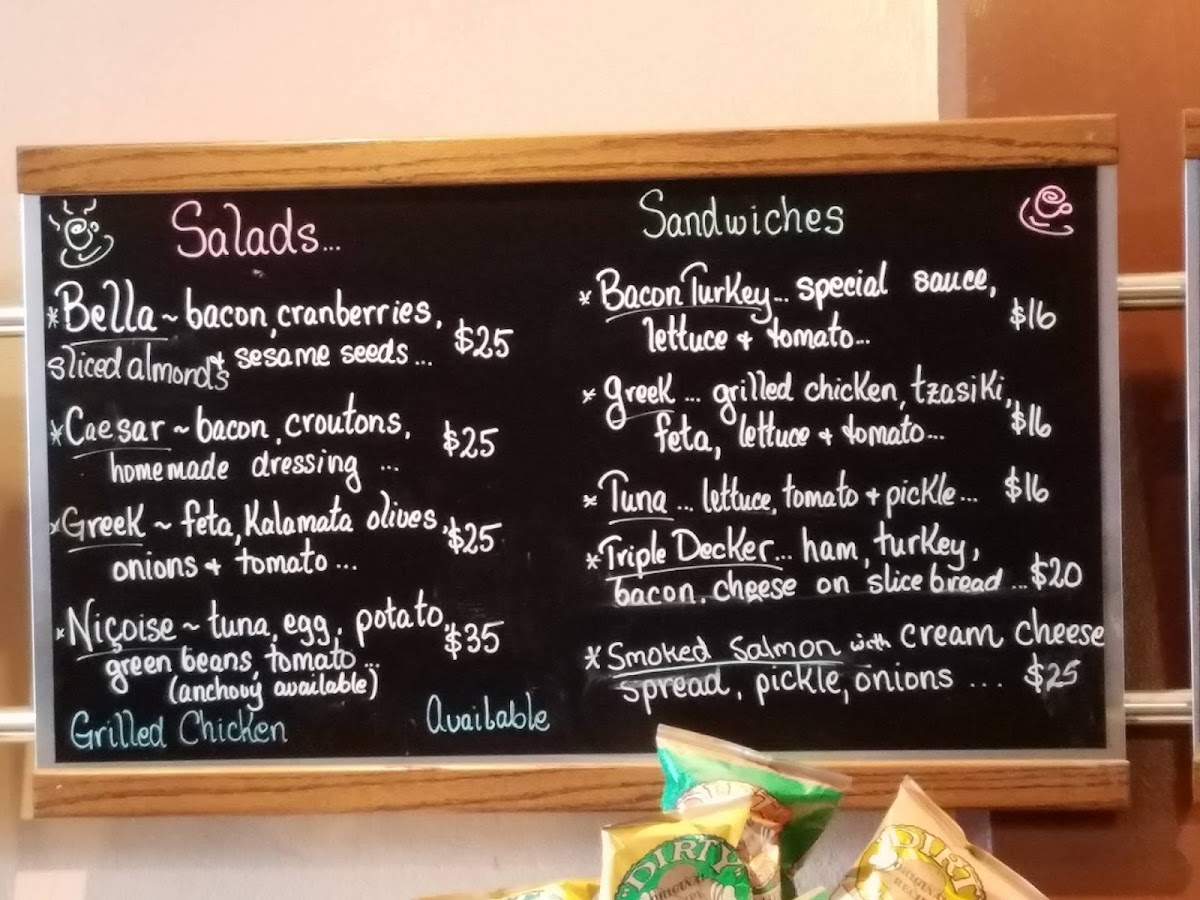 Salads...
*Bella ~ bacon, cranberries,
sliced almonds + sesame seeds ... $25
*Caesar ~ bacon, croutons,
homemade dressing ... $25
*Greek ~ feta, Kalamata olives,
onions + tomato ... $25
*Niçoise ~ tuna, egg, potato,
green beans, tomato ... $35
(anchovy available)
Grilled Chicken Available
Sandwiches
*Bacon Turkey... special sauce,
lettuce + tomato... $16
*Greek ... grilled chicken, tzasiki,
feta, lettuce + tomato... $16
*Tuna ... lettuce, tomato + pickle... $16
*Triple Decker... ham, turkey,
bacon. cheese on slice bread ... $20
*Smoked Salmon with cream cheese
spread, pickle, onions .... $25
DIRTY
ORIGINAL
DIRT
RECIPE